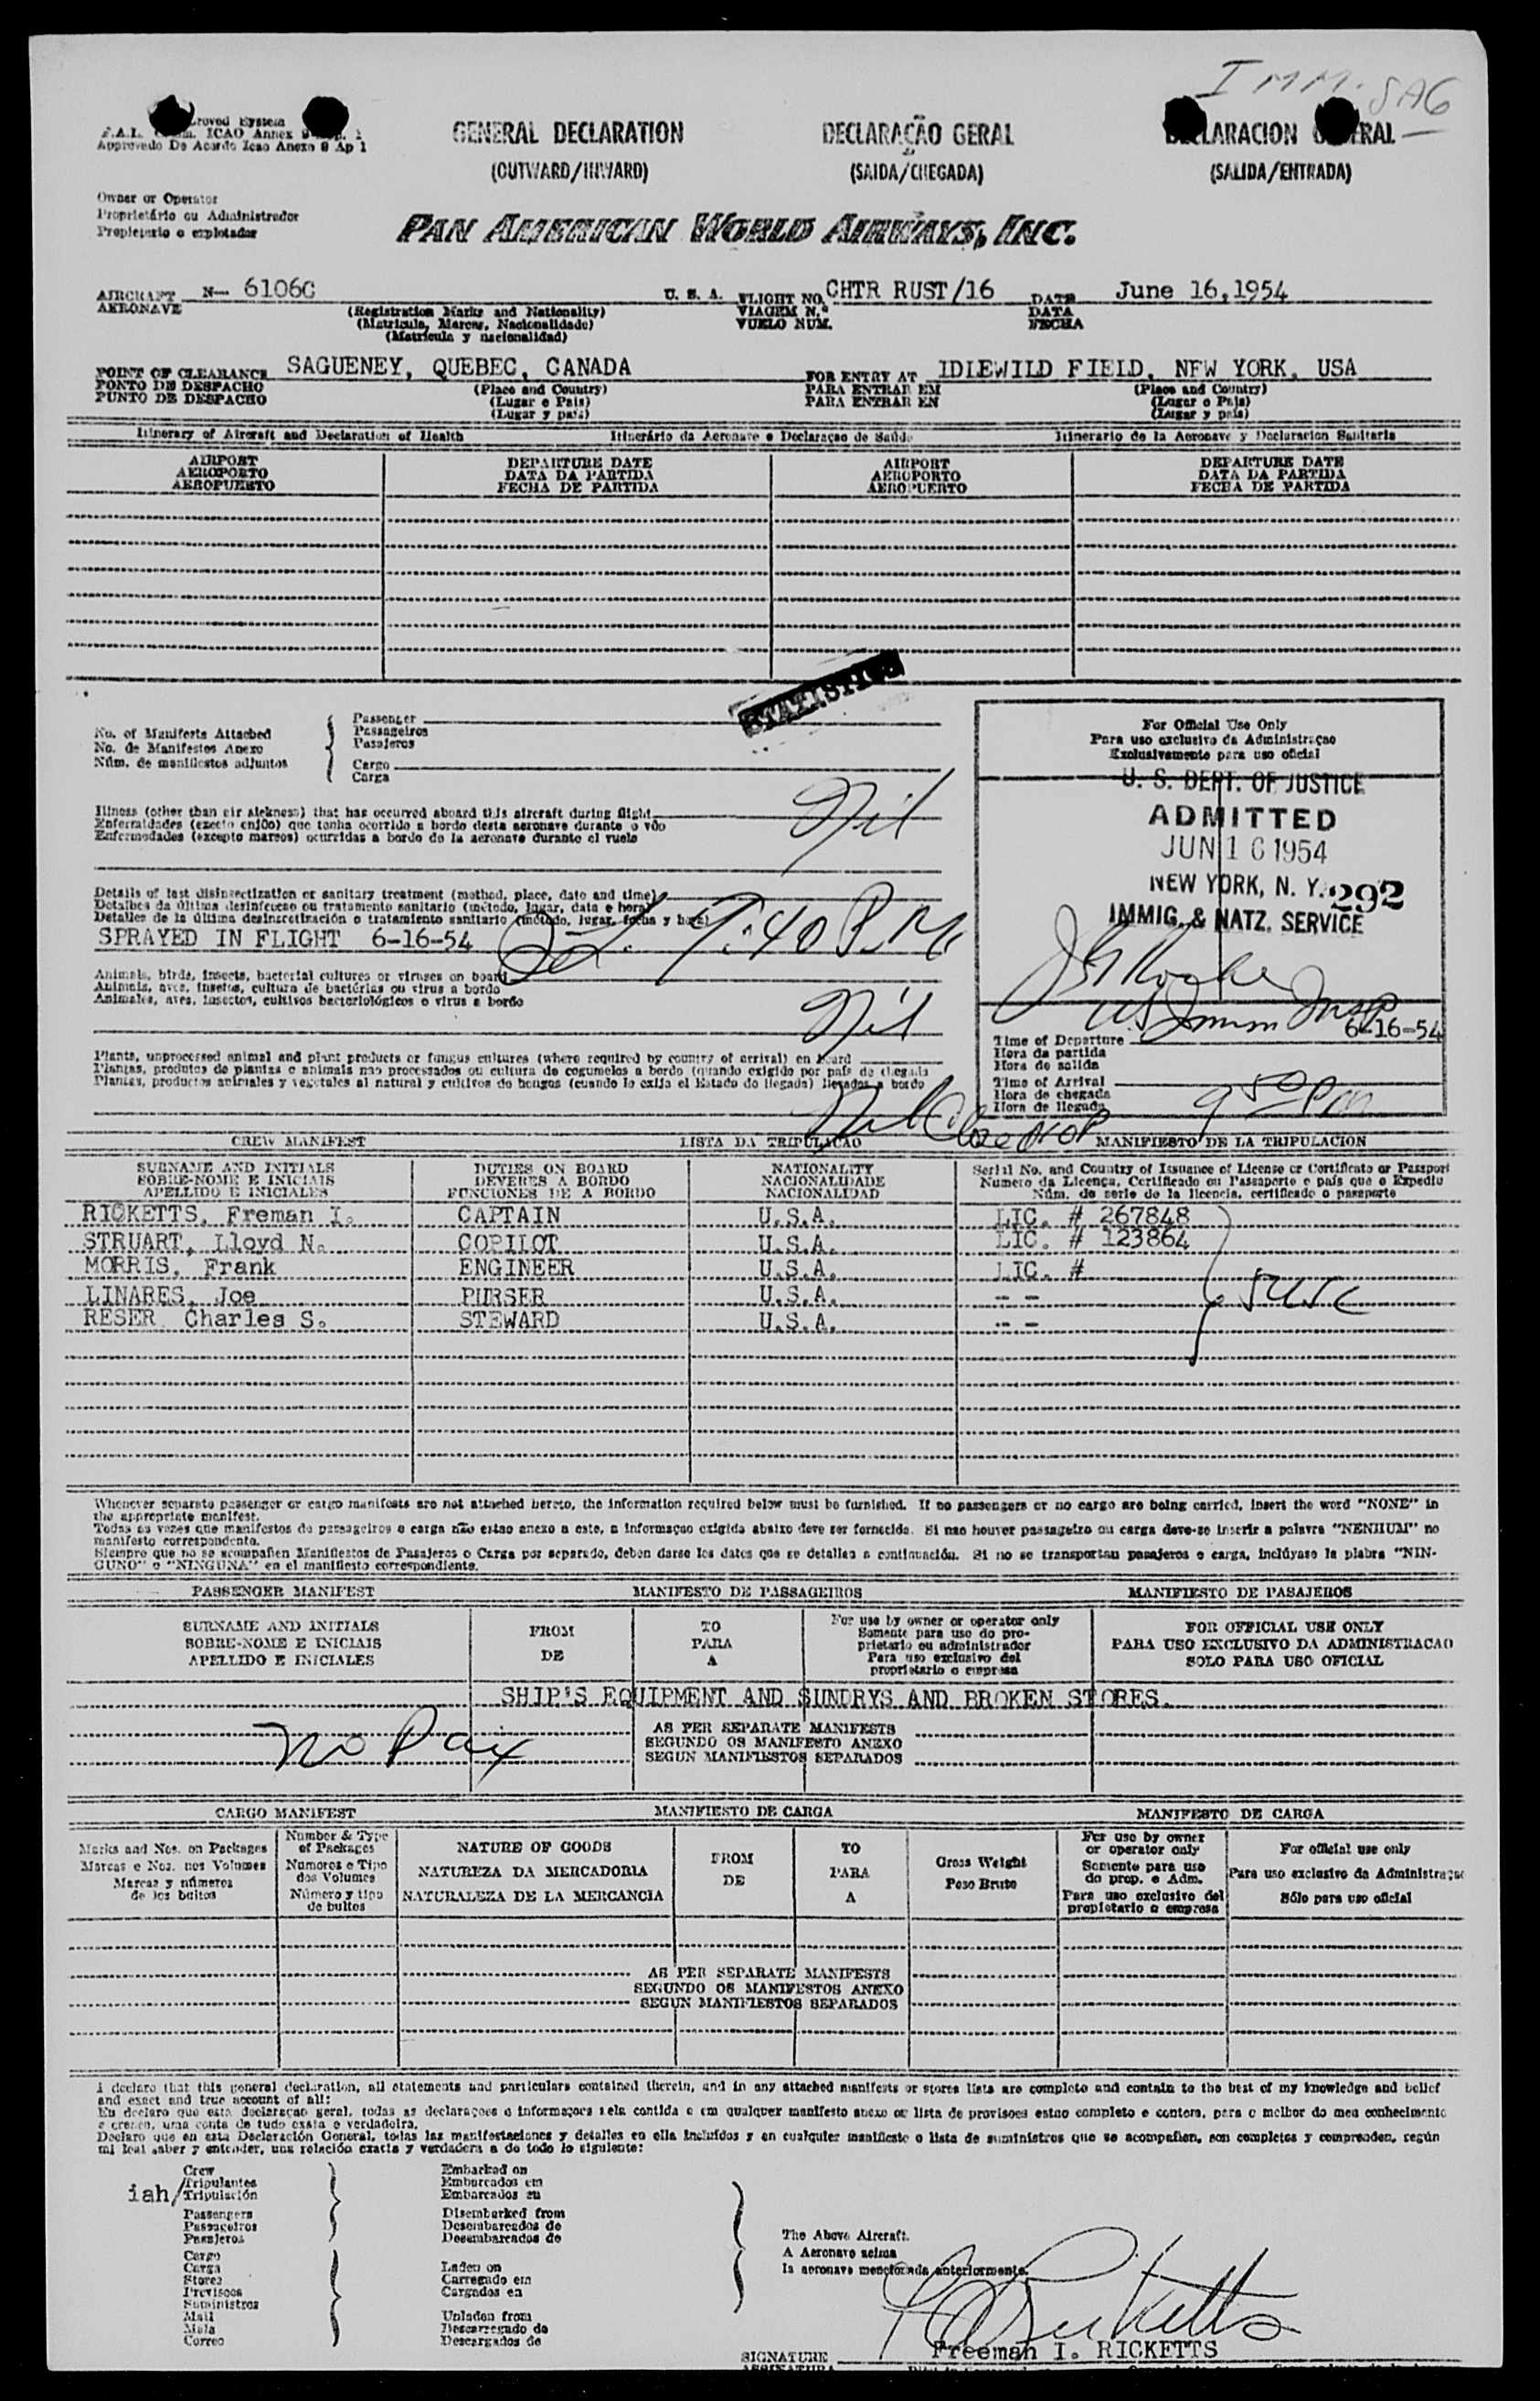 IMM. SAG
roved System
F.A.L. ICAO Annex 9
Approvedo De Acordo Icao Anexo 9 Ap 1
GENERAL DECLARATION DECLARAÇÃO GERAL LARACION RAL
(OUTWARD/INWARD) (SAIDA/CHEGADA) (SALIDA/ENTRADA)
Owner or Operator
Proprietário ou Administrador
Propietario o explotador
PAN AMERICAN WORLD AIRWAYS, INC.
AIRCRAFT N- 6106C U. S. A. FLIGHT NO. CHTR RUST/16 DATE June 16,1954
AERONAVE (Registration Marks and Nationality) VIAGEM N.º DATA
(Matricula, Marcas, Nacionalidade) VUELO NUM. FECHA
(Matrícula y nacionalidad)
POINT OF CLEARANCE SAGUENEY, QUEBEC, CANADA FOR ENTRY AT IDLEWILD FIELD, NEW YORK, USA
PONTO DE DESPACHO (Place and Country) PARA ENTRAR EM (Place and Country)
PUNTO DE DESPACHO (Lugar e Pais) PARA ENTRAR EN (Lugar o Pais)
(Lugar y país) (Lugar y país)
Itinerary of Aircraft and Declaration of Health Itinerário da Aeronave e Declaraçao de Saúde Itinerario de la Aeronave y Declaracion Sanitaria
AIRPORT DEPARTURE DATE AIRPORT DEPARTURE DATE
AEROPORTO DATA DA PARTIDA AEROPORTO DATA DA PARTIDA
AEROPUERTO FECHA DE PARTIDA AEROPUERTO FECHA DE PARTIDA
STATISTICS
No. of Manifests Attached
No. de Manifestos Anexo
Núm. de manifiestos adjuntos
Passenger
Passageiros
Pasajeros
Cargo
Carga
For Official Use Only
Para uso exclusivo da Administraçao
Exclusivamente para uso oficial
U. S. DEPT. OF JUSTICE
ADMITTED
JUN 16 1954
NEW YORK, N. Y. 292
IMMIG. & NATZ. SERVICE
US Imm Insp
6-16-54
Illness (other than air sickness) that has occurred aboard this aircraft during flight Nil
Enfermidades (exceto enjôo) que tenha ocorrido a bordo desta aeronave durante o vôo
Enfermedades (excepto mareos) ocurridas a bordo de la aeronave durante el vuelo
Details of last disinsectization or sanitary treatment (method, place, date and time)
Detalhes da última desinfecao ou tratamento sanitario (método, lugar, data e hora)
Detalles de la última desinsectización o tratamiento sanitario (método, lugar, fecha y hora)
SPRAYED IN FLIGHT 6-16-54 9:40 P.M.
Animals, birds, insects, bacterial cultures or viruses on board
Animais, aves, insetos, cultura de bactérias ou virus a bordo
Animales, aves, insectos, cultivos bacteriológicos o virus a bordo
Nil
Time of Departure
Hora da partida
Hora de salida
Time of Arrival 9 50 PM
Hora de chegada
Hora de llegada
Plants, unprocessed animal and plant products or fungus cultures (where required by country of arrival) on board
Plantas, produtos de plantas e animais nao processados ou cultura de cogumelos a bordo (quando exigido por país de chegada
Plantas, productos animiales y vegetales al natural y cultivos de hongos (cuando lo exija el Estado de llegada) llevados a bordo
Nil
CREW MANIFEST LISTA DA TRIPULACAO MANIFIESTO DE LA TRIPULACION
SURNAME AND INITIALS DUTIES ON BOARD NATIONALITY Serial No. and Country of Issuance of License or Certificate or Passport
SOBRE-NOME E INICIAIS DEVERES A BORDO NACIONALIDADE Numero da Licença, Certificado ou Passaporte e país que o Expediu
APELLIDO E INICIALES FUNCIONES DE A BORDO NACIONALIDAD Núm. de serie de la licencia, certificado o pasaporte
RICKETTS, Freman I. CAPTAIN U.S.A. LIC. # 267848
STRUART, Lloyd N. COPILOT U.S.A. LIC. # 123864
MORRIS, Frank ENGINEER U.S.A. LIC. #
LINARES, Joe PURSER U.S.A. - - 5 USC
RESER Charles S. STEWARD U.S.A. - -
Whenever separate passenger or cargo manifests are not attached hereto, the information required below must be furnished. If no passengers or no cargo are being carried, insert the word "NONE" in
the appropriate manifest.
Todas as vezes que manifestos de passageiros e carga não estao anexo a este, a informaçao exigida abaixo deve ser fornecida. Si nao houver passageiro ou carga deve-se inserir a palavra "NENHUM" no
manifesto correspondente.
Siempre que no se acompañen Manifiestos de Pasajeros o Carga por separado, deben darse los datos que se detallan a continuación. Si no se transportan pasajeros o carga, inclúyase la plabra "NIN-
GUNO" o "NINGUNA" en el manifiesto correspondiente.
PASSENGER MANIFEST MANIFESTO DE PASSAGEIROS MANIFIESTO DE PASAJEROS
SURNAME AND INITIALS FROM TO For use by owner or operator only FOR OFFICIAL USE ONLY
SOBRE-NOME E INICIAIS DE PARA Somente para uso do pro- PARA USO EXCLUSIVO DA ADMINISTRACAO
APELLIDO E INICIALES A prietario ou administrador SOLO PARA USO OFICIAL
Para uso exclusivo del
proprietario o empresa
SHIP'S EQUIPMENT AND SUNDRYS AND BROKEN STORES.
No Pax
AS PER SEPARATE MANIFESTS
SEGUNDO OS MANIFESTO ANEXO
SEGUN MANIFIESTOS SEPARADOS
CARGO MANIFEST MANIFIESTO DE CARGA MANIFESTO DE CARGA
Marks and Nos. on Packages
Marcas e Nos. nos Volumes
Marcas y números
de los bultos
Number & Type
of Packages
Numeros e Tipo
dos Volumes
Número y tipo
de bultos
NATURE OF GOODS
NATUREZA DA MERCADORIA
NATURALEZA DE LA MERCANCIA
FROM
DE
TO
PARA
A
Gross Weight
Peso Bruto
For use by owner
or operator only
Somente para uso
do prop. e Adm.
Para uso exclusivo del
propietario o empresa
For official use only
Para uso exclusivo da Administraçao
Sólo para uso oficial
AS PER SEPARATE MANIFESTS
SEGUNDO OS MANIFESTOS ANEXO
SEGUN MANIFIESTOS SEPARADOS
I declare that this general declaration, all statements and particulars contained therein, and in any attached manifests or stores lists are complete and contain to the best of my knowledge and belief
and exact and true account of all:
Eu declaro que esta declaraçao geral, todas as declaraçoes e informaçoes nela contida e em qualquer manifesto anexo ou lista de provisoes estao completo e contem, para o melhor do meu conhecimento
e crecen, uma conta de tudo exata e verdadeira.
Declaro que en esta Declaración General, todas las manifestaciones y detalles en ella incluídos y en cualquier manifiesto o lista de suministros que se acompañen, son completos y comprenden, según
mi leal saber y entender, una relación exacta y verdadera a de todo lo siguiente:
iah/
Crew
Tripulantes
Tripulación
Passengers
Passageiros
Pasajeros
Cargo
Carga
Stores
Previsoes
Suministros
Mail
Mala
Correo
Embarked on
Embarcados em
Embarcados en
Disembarked from
Desembarcados de
Desembarcados de
Laden on
Carregado em
Cargados en
Unladen from
Descarregado de
Descargados de
The Above Aircraft.
A Aeronave acima
la aeronave mencionada anteriormente.
Ricketts
Freeman I. RICKETTS
SIGNATURE
ASSINATURA